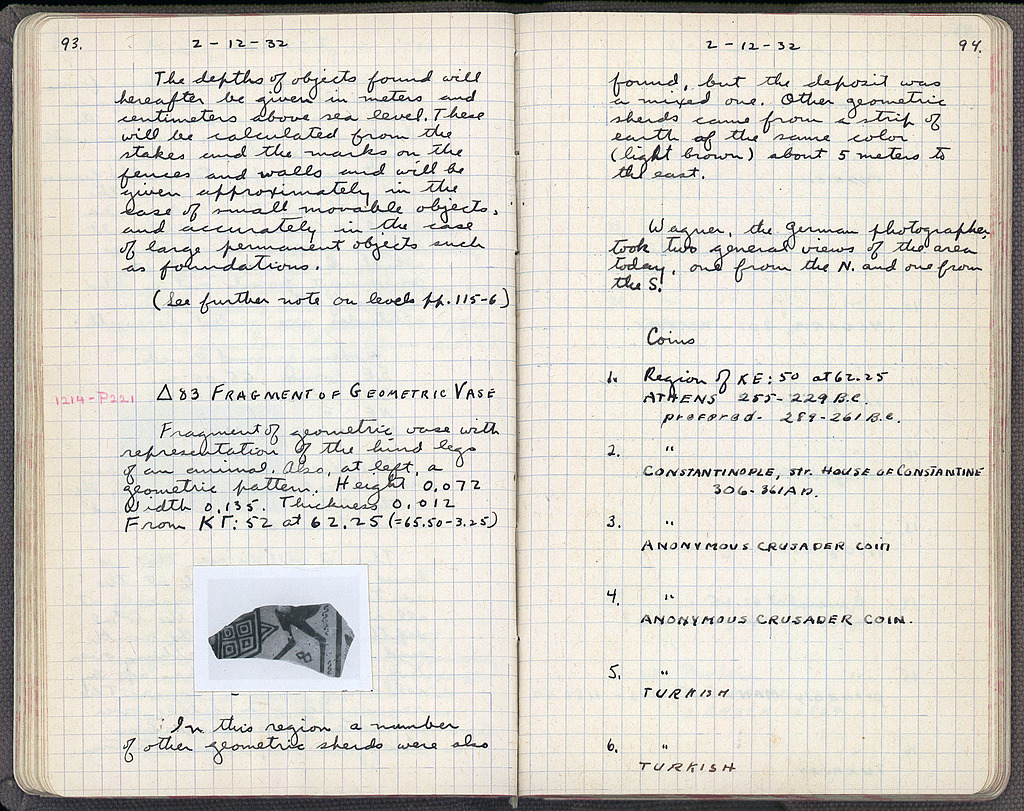 93.
2-12-32
The depths of objects found will
hereafter be given in meters and
centimeters above sea level. These
will be calculated from the
stakes and the marks on the
fences and walls and will be
given approximately in the
case of small movable objects,
and accurately in the case
of large permanent objects such
as foundations.
(See further note on levels pp. 115-6)
1214-P221
Δ83 FRAGMENT OF GEOMETRIC VASE
Fragment of geometric vase with
representation of the hind legs
of an animal. Also, at left, a
geometric pattern. Height 0.072
Width 0.135. Thickness 0.012
From ΚΓ:52 at 62.25 (=65.50-3.25)
In this region a number
of other geometric sherds were also
2-12-32
94.
found, but the deposit was
a mixed one. Other geometric
sherds came from a strip of
earth of the same color
(light brown) about 5 meters to
the east.
Wagner, the German photographer,
took two general views of the area
today, one from the N. and one from
the S.
Coins
1. Region of KE:50 at 62.25
ATHENS 255-229 B.C.
preferred- 289-261 B.C.
2. "
CONSTANTINOPLE, Str. HOUSE OF CONSTANTINE
306-361 A.D.
3. "
ANONYMOUS CRUSADER COIN
4. "
ANONYMOUS CRUSADER COIN.
5. "
TURKISH
6. "
TURKISH